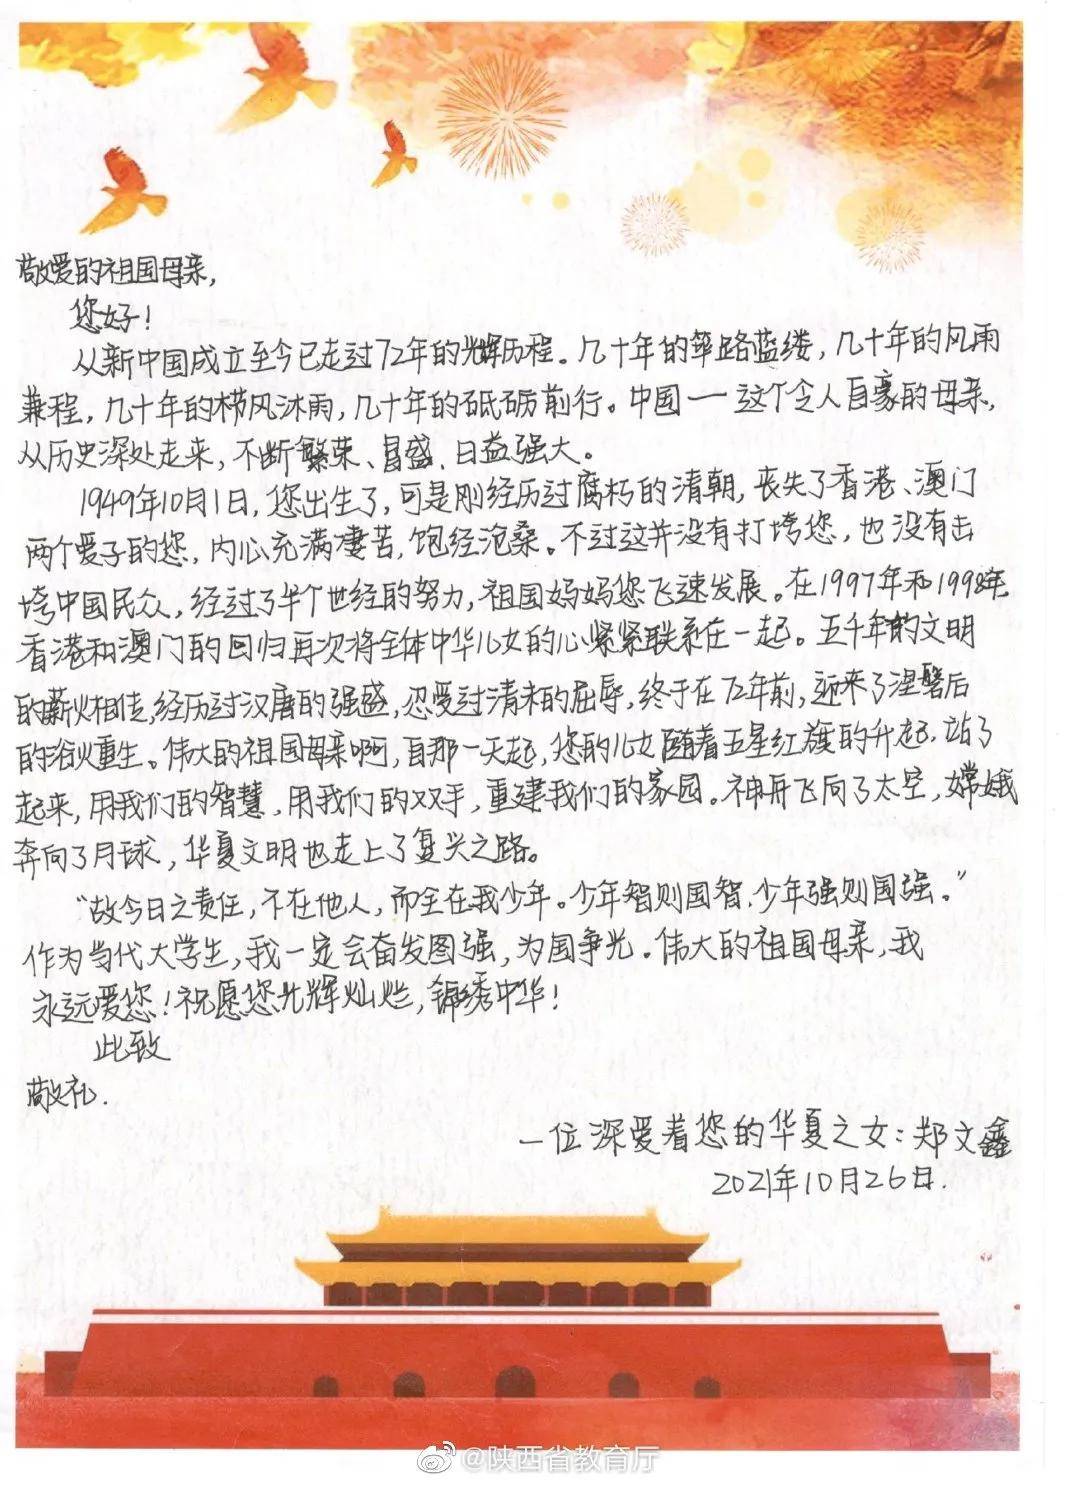 敬爱的祖国母亲，
您好！
从新中国成立至今已走过72年的光辉历程。几十年的筚路蓝缕，几十年的风雨
兼程，几十年的栉风沐雨，几十年的砥砺前行。中国一这个令人自豪的母亲，
从历史深处走来，不断繁荣、昌盛、日益强大。
1949年10月1日，您出生了，可是刚经历过腐朽的清朝，丧失了香港、澳门
两个爱子的您，内心充满凄苦，饱经沧桑。不过这并没有打垮您，也没有击
垮中国民众，经过了半个世经的努力，祖国妈妈您飞速发展。在1997年和
香港和澳门的回归再次将全体中华儿女的心紧紧联系在一起。五千年的文明
的薪火相传，经历过汉唐的强盛，忍受过清末的屈辱，终于在72年前，迎来了涅磐后
的浴火重生。伟大的祖国母亲啊，自那一天起，您的儿女随着五星红旗的升起，站了
起来，用我们的智慧，用我们的双手，重建我们的家园。神舟飞向了太空，嫦娥
奔向了月球，华夏文明也走上了复兴之路。
“故今日之责任，不在他人，而全在我少年。少年智则国智，少年强则国强。”
作为当代大学生，我一定会奋发图强，为国争光。伟大的祖国母亲，我
永远爱您！祝愿您光辉灿烂，锦绣中华！
此致
敬礼.
一位深爱着您的华夏之女：郑文鑫
2021年10月26日.
@陕西省教育厅